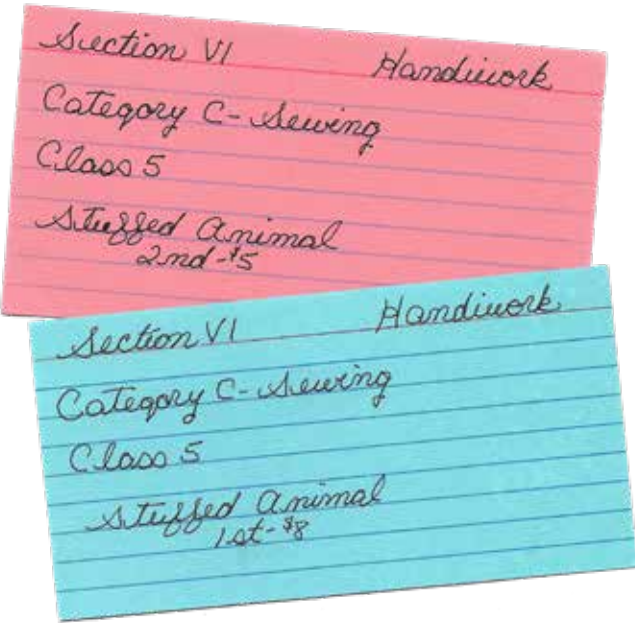 Section VI Handiwork
Category C- Sewing
Class 5
Stuffed Animal
2nd-$5
Section VI Handiwork
Category C- Sewing
Class 5
Stuffed Animal
1st-$8